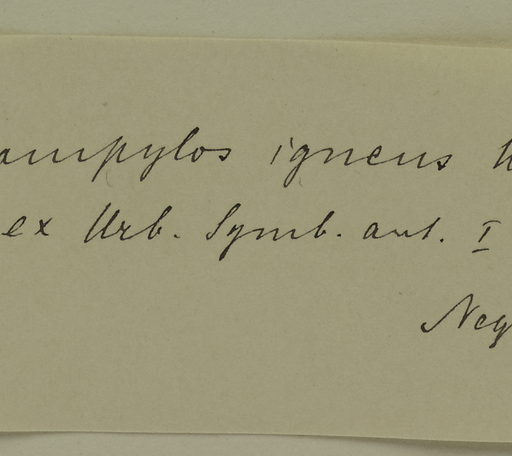 ampylos igneus
ex Urb. Symb. ant. I
Ney